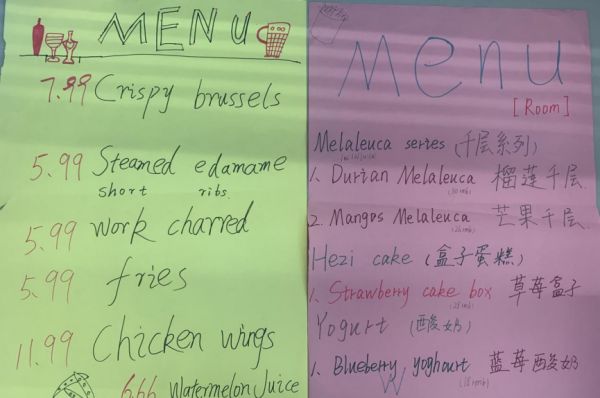 MENU
7.99 Crispy brussels
5.99 Steamed edamame
short ribs
5.99 work charred
5.99 fries
11.99 Chicken wings
6.66 Watermelon Juice
Menu
[Room]
Melaleuca series (千层系列)
1. Durian Melaleuca 榴莲千层
(30rmb)
2. Mangos Melaleuca 芒果千层
(26rmb)
Hezi cake (盒子蛋糕)
1. Strawberry cake box 草莓盒子
(28rmb)
Yogurt (酸奶)
1. Blueberry yoghourt 蓝莓酸奶
(18rmb)